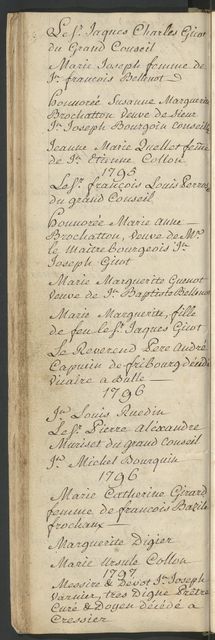 Le Sr. Jaques Charles Guiot
du Grand Conseil
Marie Joseph femme de
Jn. françois Bellenot
honnorée Susanne Marguerite
Brochatton veuve de Sieur
Jn. Joseph Bourgoin conseille
Jeanne Marie Quellet femme
de Jn Etienne Collon
1795
Le Sr. françois Louis Perros
du grand Conseil
honnorée Marie Anne
Brochatton, veuve de Mr.
le Maitrebourgeois Jn.
Joseph Guiot
Marie Marguerite Guenot
veuve de Jn. Baptiste Bellenot
Marie Marguerite, fille
de feu le Sr. Jaques Guiot
Le Reverend Pere André
Capucin de fribourg
vicaire a Bulle
1796
Jn Louis Ruedin
Le Sr. Pierre alexandre
Muriset du grand Conseil
Jn. Michel Bourquin
1796
Marie Catherine Girard
femme de francois Bazile
frochaux
Marguerite Digier
Marie Ursule Collon
1797
Messire & Devot Jn. Joseph
Varnier, tres Digne Prêtre
Curé & Doyen décédé a
Cressier